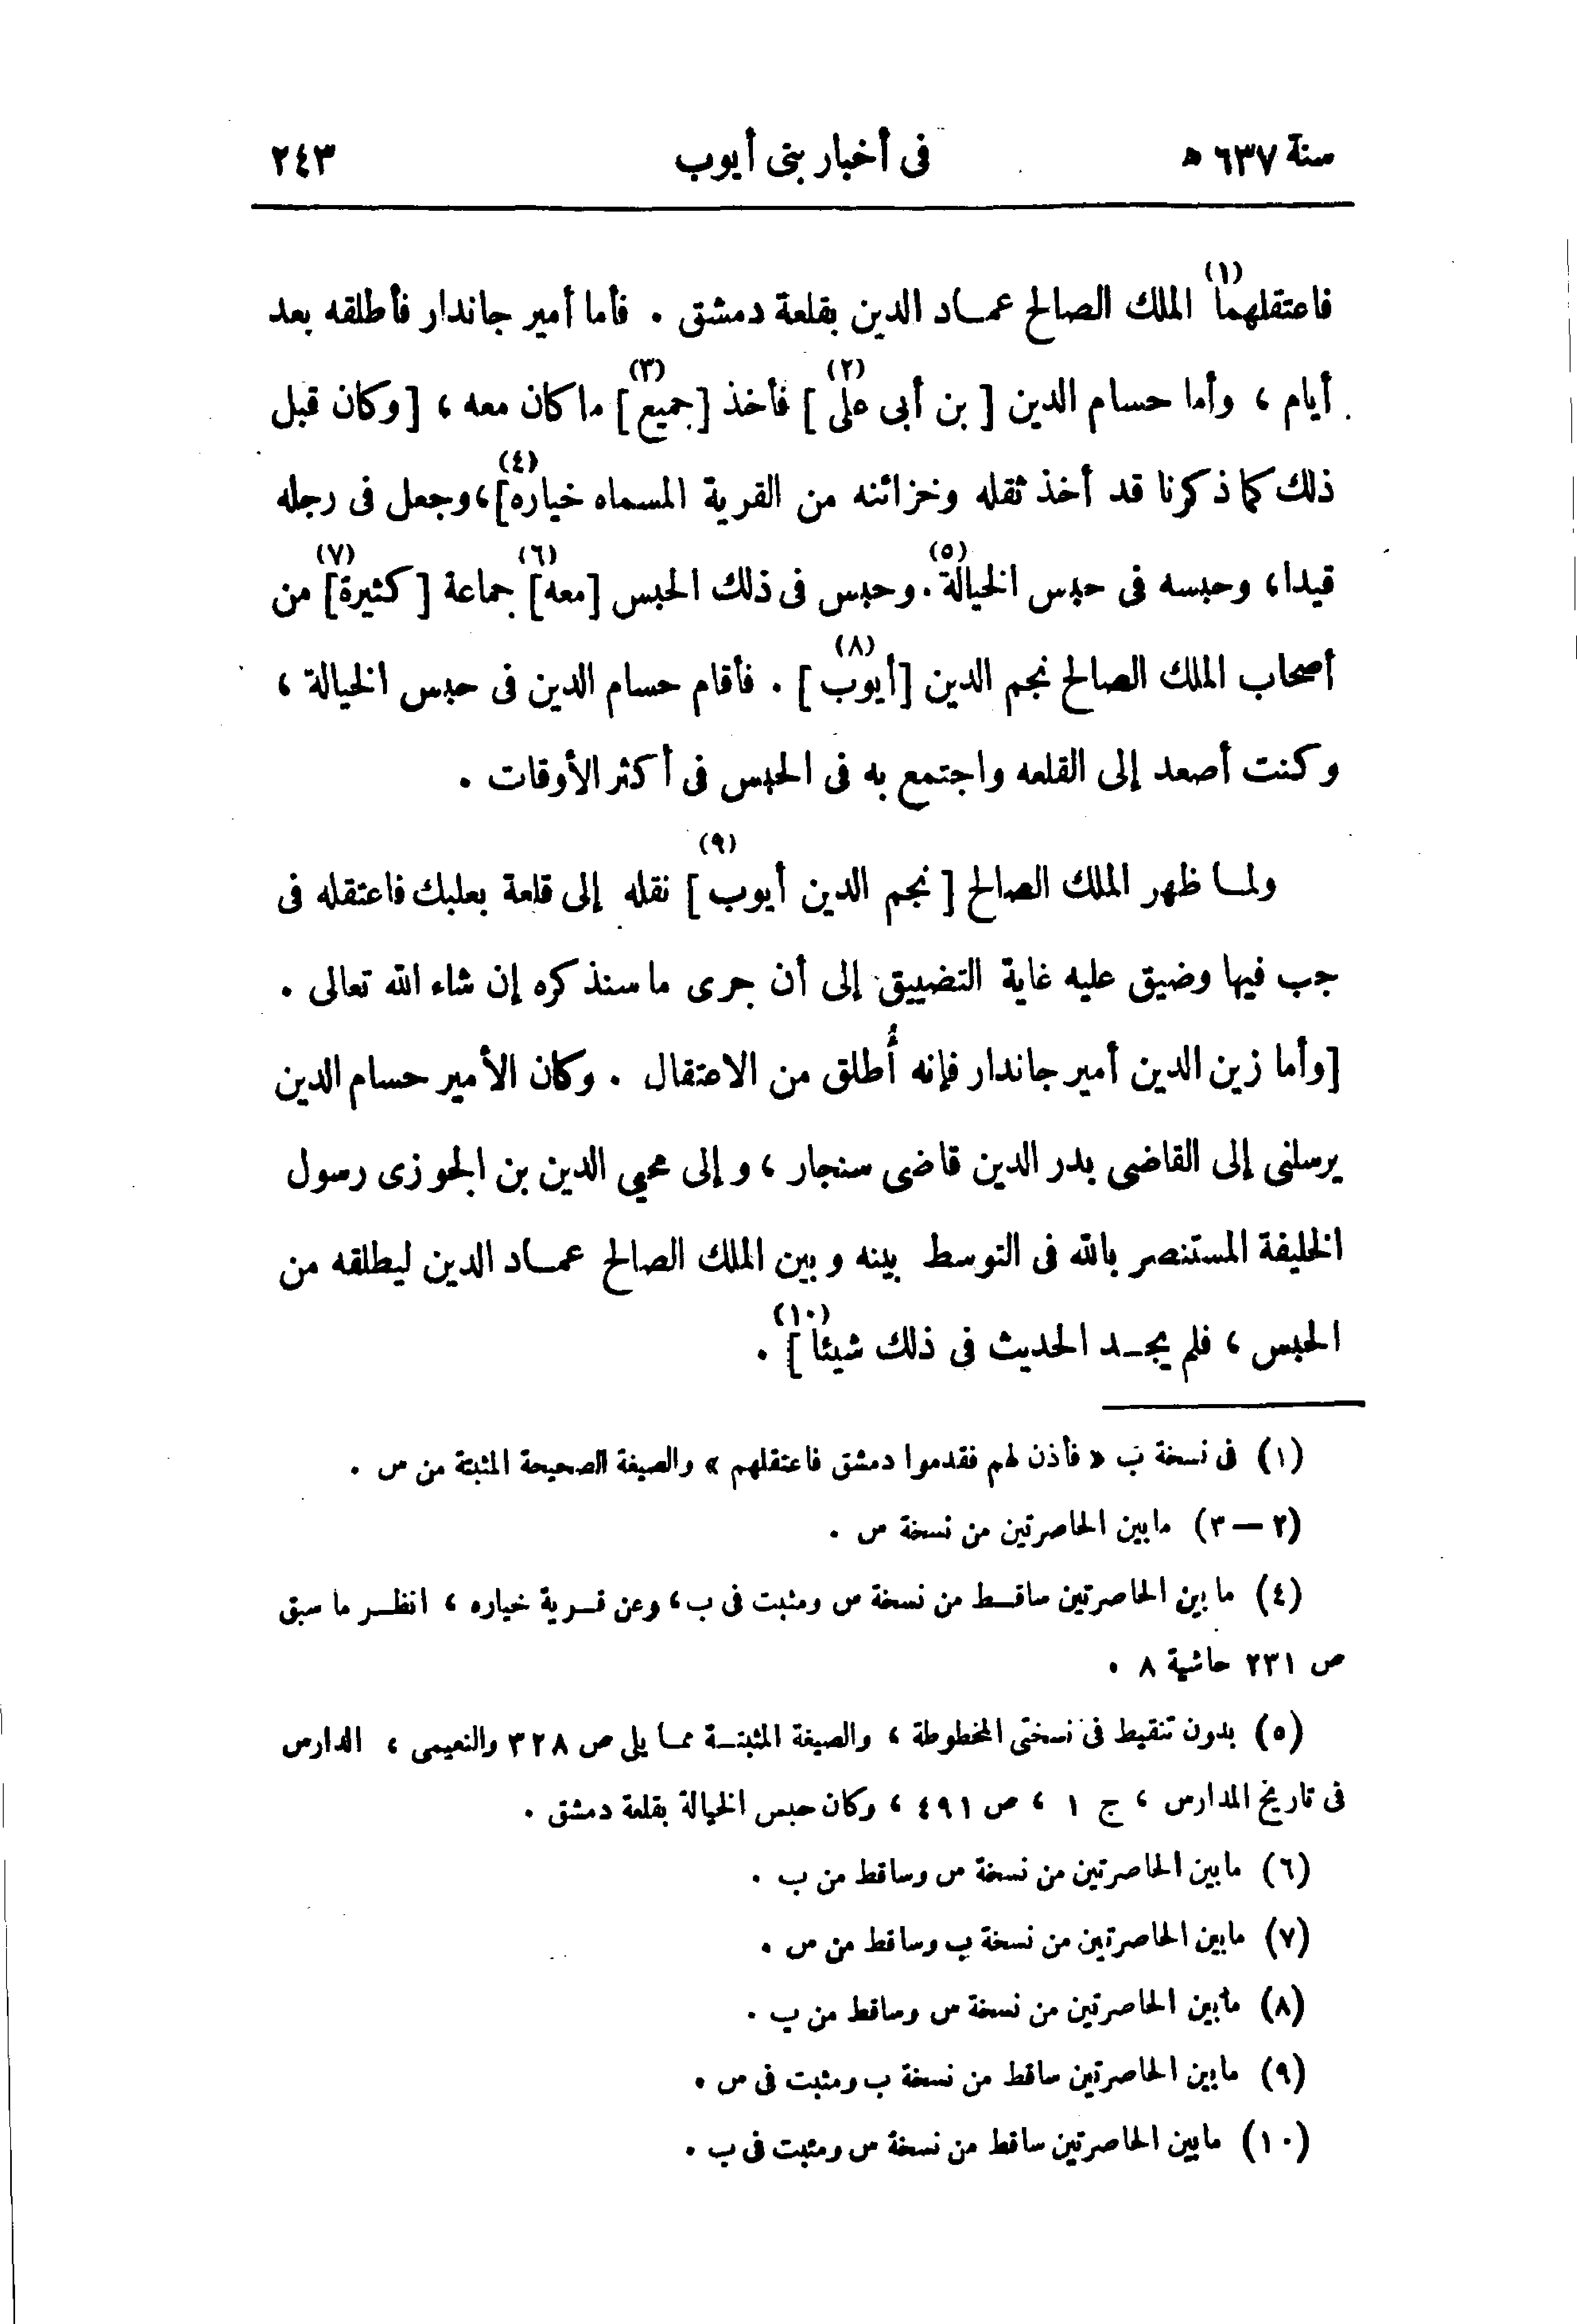 سنة ٦٣٧ هـ فى أخبار بنى أيوب ٢٤٣
فاعتقلهما(١) الملك الصالح عماد الدين بقلعة دمشق . فأما أمير جاندار فأطلقه بعد
أيام ، وأما حسام الدين [ بن أبى على(٢) ] فأخذ [جميع(٣)] ما كان معه ، [وكان قبل
ذلك كما ذكرنا قد أخذ ثقله وخزائنه من القرية المسماه خياره(٤)]، وجعل فى رجله
قيدا، وحبسه فى حبس الخيالة(٥). وحبس فى ذلك الحبس [معه(٦)] جماعة [كثيرة(٧)] من
أصحاب الملك الصالح نجم الدين [أيوب(٨)] . فأقام حسام الدين فى حبس الخيالة ،
وكنت أصعد إلى القلعه واجتمع به فى الحبس فى أكثر الأوقات .
ولما ظهر الملك الصالح [ نجم الدين أيوب(٩) ] نقله إلى قلعة بعلبك فاعتقله فى
جب فيها وضيق عليه غاية التضييق إلى أن جرى ما سنذكره إن شاء الله تعالى .
[وأما زين الدين أمير جاندار فإنه أُطلق من الاعتقال . وكان الأمير حسام الدين
يرسلنى إلى القاضى بدر الدين قاضى سنجار ، وإلى محيى الدين بن الجوزى رسول
الخليفة المستنصر بالله فى التوسط بينه وبين الملك الصالح عماد الدين ليطلقه من
الحبس ، فلم يجد الحديث فى ذلك شيئا(١٠)] .
(١) فى نسخة ب « فأذن لهم فقدموا دمشق فاعتقلهم » والصيغة الصحيحة المثبتة من س .
(٢ — ٣) مابين الحاصرتين من نسخة س .
(٤) ما بين الحاصرتين ساقط من نسخة س ومثبت فى ب، وعن قرية خياره ، انظر ما سبق
ص ٢٣١ حاشية ٨ .
(٥) بدون تنقيط فى نسختى المخطوطة ، والصيغة المثبتة مما يلى ص ٣٢٨ والنعيمى ، الدارس
فى تاريخ المدارس ، ج ١ ، ص ٤٩١ ، وكان حبس الخيالة بقلعة دمشق .
(٦) مابين الحاصرتين من نسخة س وساقط من ب .
(٧) مابين الحاصرتين من نسخة ب وساقط من س .
(٨) مابين الحاصرتين من نسخة س وساقط من ب .
(٩) مابين الحاصرتين ساقط من نسخة ب ومثبت فى س .
(١٠) مابين الحاصرتين ساقط من نسخة س ومثبت فى ب .